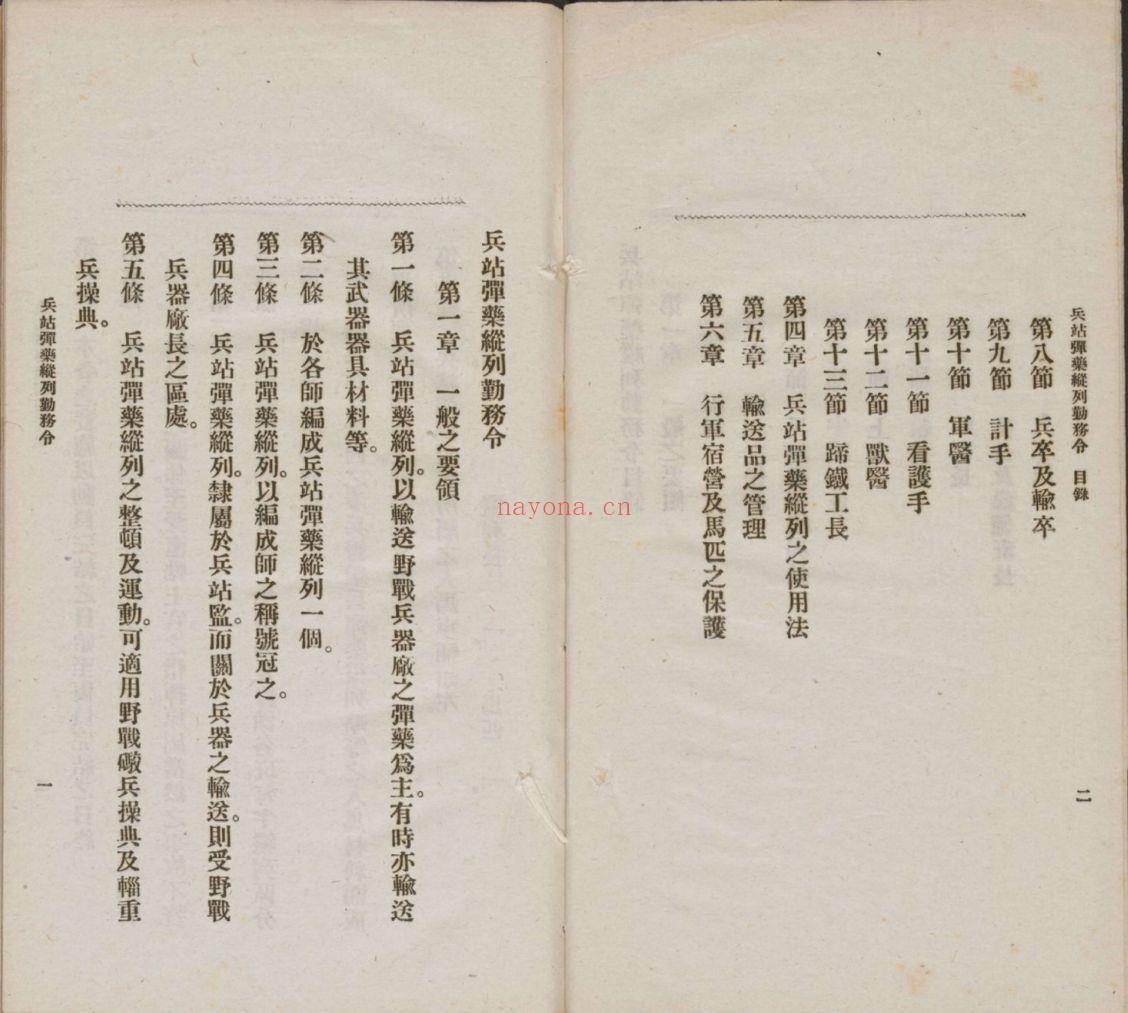 兵站彈藥縱列勤務令　目錄
第八節　兵卒及輸卒
第九節　計手
第十節　軍醫
第十一節　看護手
第十二節　獸醫
第十三節　蹄鐵工長
第四章　兵站彈藥縱列之使用法
第五章　輸送品之管理
第六章　行軍宿營及馬匹之保護
二
兵站彈藥縱列勤務令
第一章　一般之要領
第一條　兵站彈藥縱列。以輸送野戰兵器廠之彈藥爲主。有時亦輸送
其武器器具材料等。
第二條　於各師編成兵站彈藥縱列一個。
第三條　兵站彈藥縱列。以編成師之稱號冠之。
第四條　兵站彈藥縱列。隸屬於兵站監。而關於兵器之輸送。則受野戰
兵器廠長之區處。
第五條　兵站彈藥縱列之整頓及運動。可適用野戰礮兵操典及輜重
兵操典。
兵站彈藥縱列勤務令
一
nayona.cn